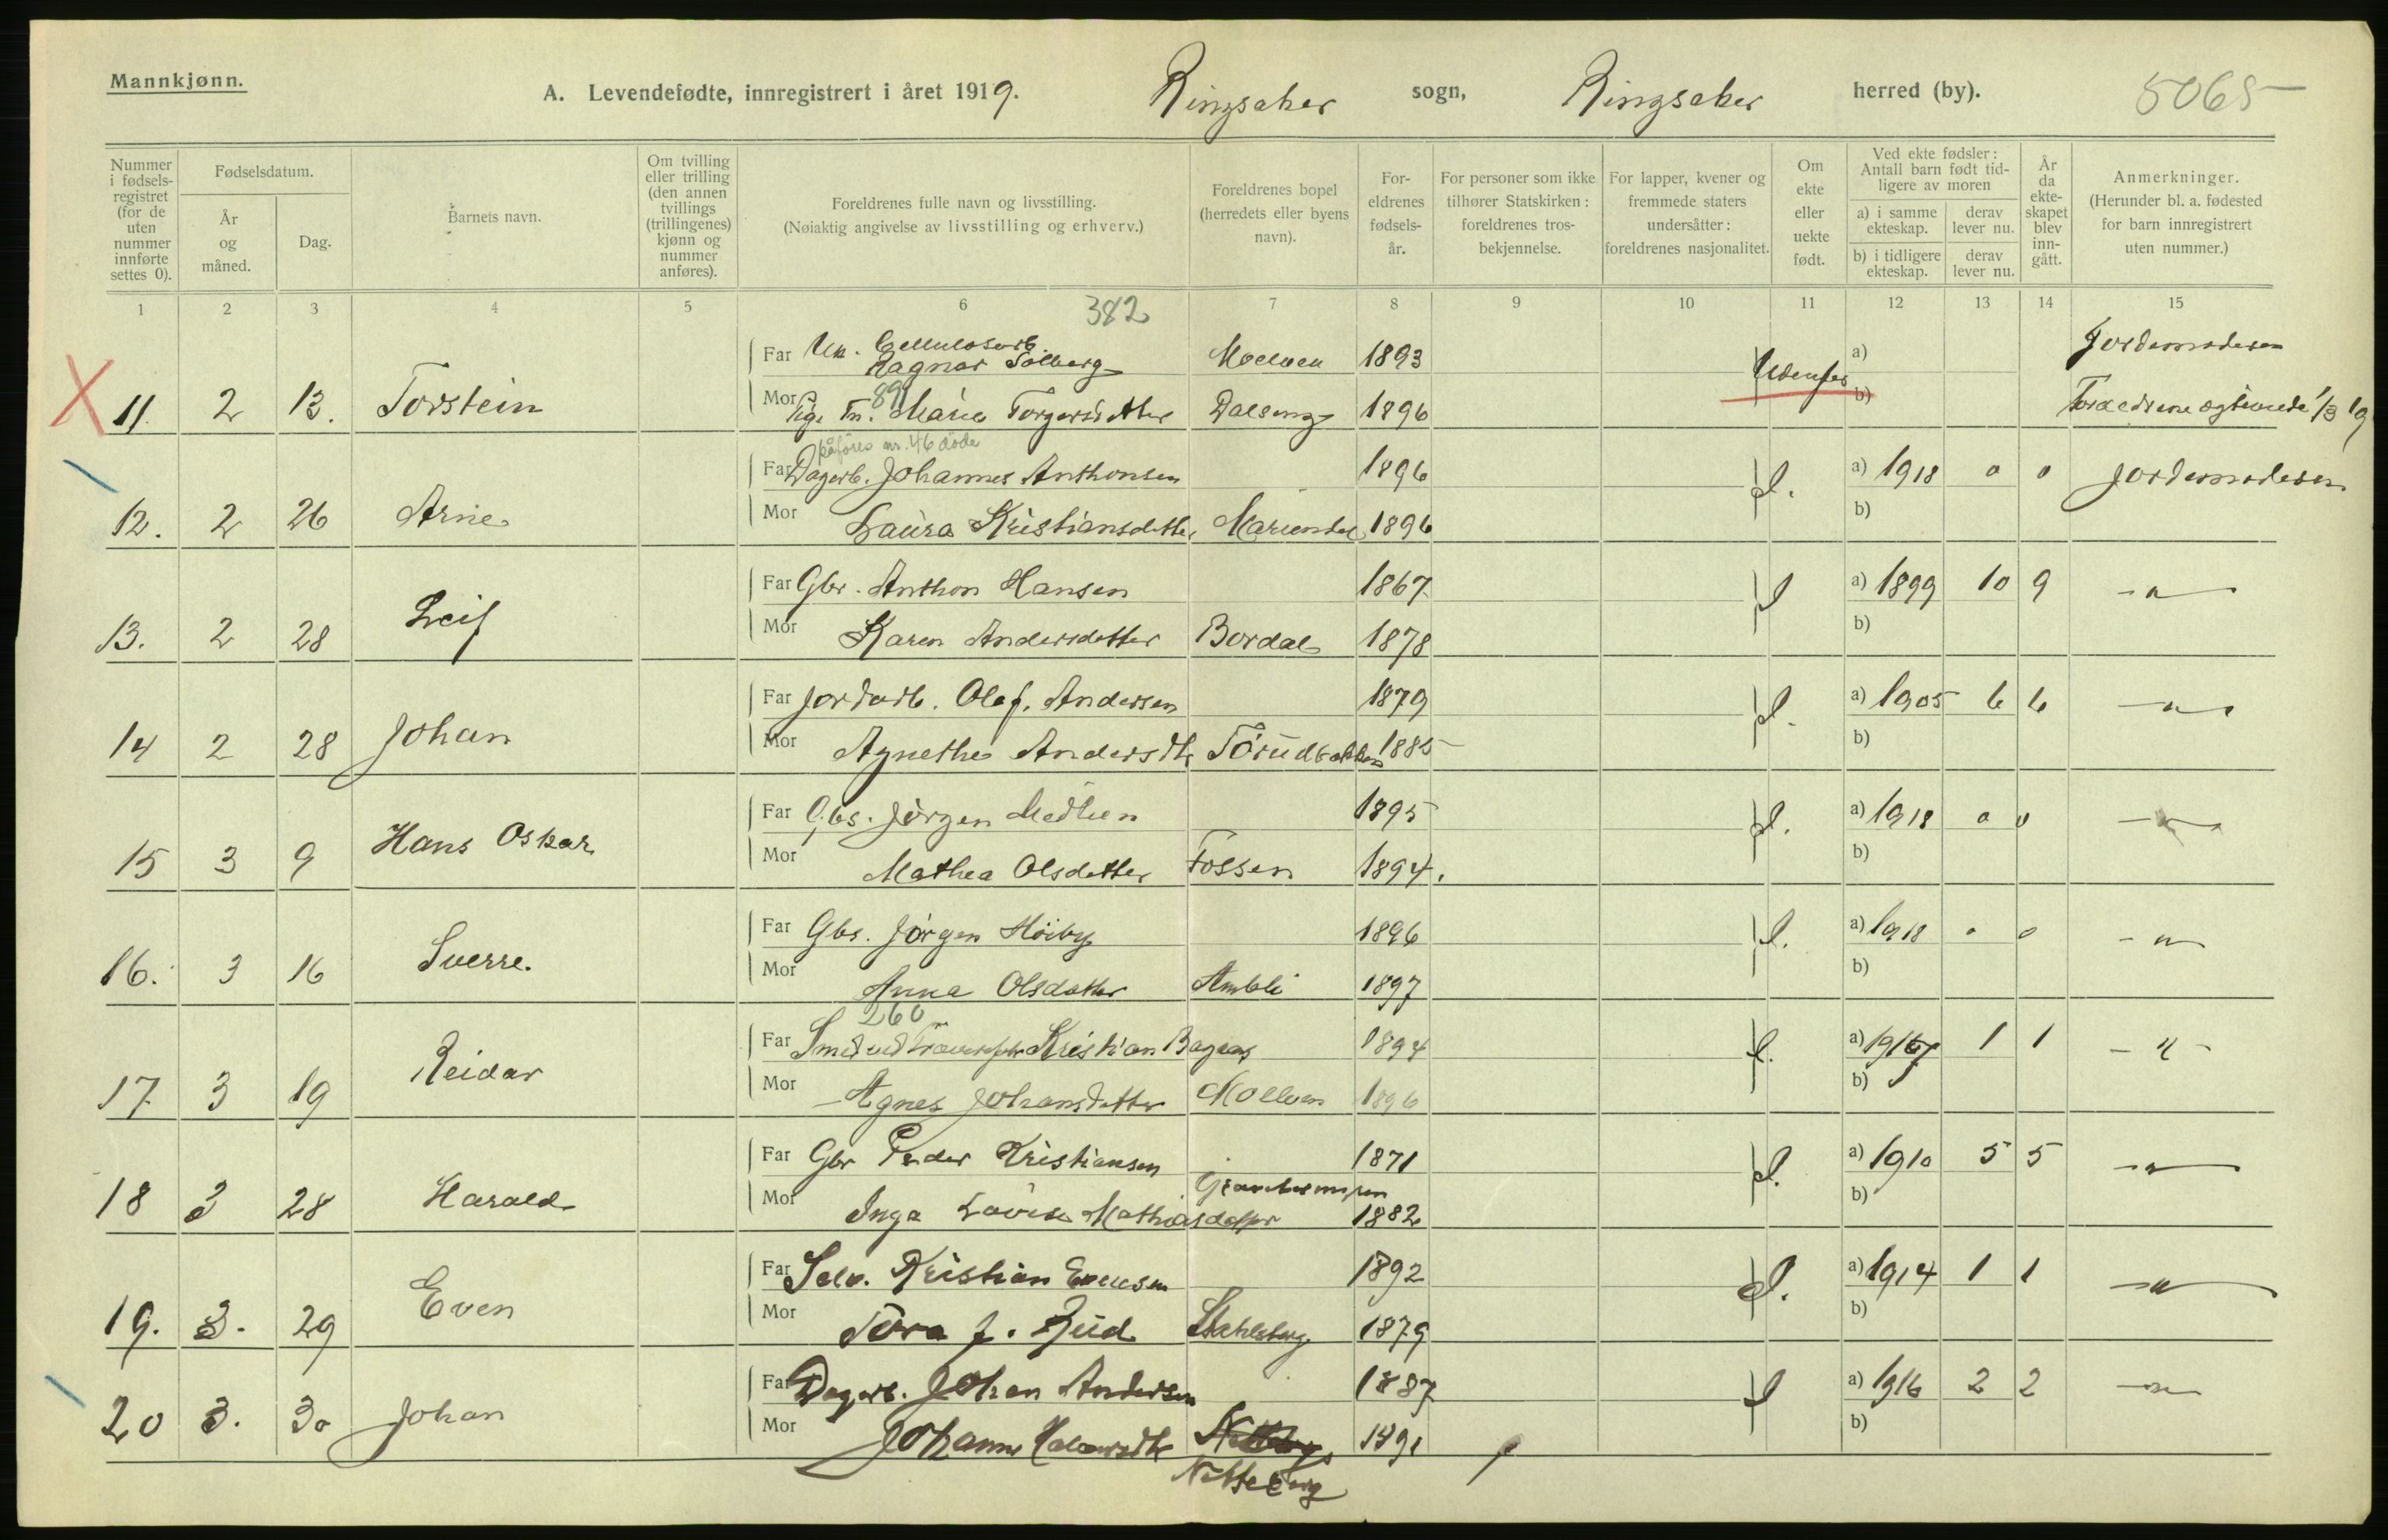 Mannkjønn.
A. Levendefødte, innregistrert i året 1919. Ringsaker sogn, Ringsaker herred (by). 5065
Nummer i fødsels-registret (for de uten nummer innførte settes 0).
Fødselsdatum.
År og måned.
Dag.
Barnets navn.
Om tvilling eller trilling (den annen tvillings (trillingenes) kjønn og nummer anføres).
Foreldrenes fulle navn og livsstilling.
(Nøiaktig angivelse av livsstilling og erhverv.)
Foreldrenes bopel (herredets eller byens navn).
For-eldrenes fødsels-år.
For personer som ikke tilhører Statskirken: foreldrenes tros-bekjennelse.
For lapper, kvener og fremmede staters undersåtter: foreldrenes nasjonalitet.
Om ekte eller uekte født.
Ved ekte fødsler: Antall barn født tid-ligere av moren
a) i samme ekteskap. derav lever nu.
b) i tidligere ekteskap. derav lever nu.
År da ekte-skapet blev inn-gått.
Anmerkninger.
(Herunder bl. a. fødested for barn innregistrert uten nummer.)
1 2 3 4 5 6 382 7 8 9 10 11 12 13 14 15
Far Uk. Cellulosearb. Ragnar Solberg Moelven 1893 a) Jordemoderen
11. 2 13. Torstein Mor Pige Tn. 891 Marie Torgersdatter Dalseng 1896 b)
påføres nr. 46 døde
Far Dagarb. Johannes Anthonsen 1896 a) 1918 0 0 Jordemoderen
12. 2 26 Arne Mor Laura Kristiansdatter Mariendal 1896 b)
Far Gbr. Anthon Hansen 1867 a) 1899 10 9 -"-
13. 2 28 Leif Mor Karen Andersdatter Bordal 1878 b)
Far Jordarb. Olaf Andersen 1879 a) 1905 6 6 -"-
14 2 28 Johan Mor Agnethe Andersdtr Torudbakken 1885 b)
Far Gbs. Jørgen Medlien 1895 a) 1918 0 0 -"-
15 3 9 Hans Oskar Mor Mathea Olsdatter Fossen 1894. b)
Far Gbs. Jørgen Høiby 1896 a) 1918 0 0 -"-
16. 3 16 Sverre. Mor Anna Olsdatter Ambli 1897 b)
260
Far Smed ved Kristian Bagaas 1894 a) 1 1 -"-
17 3 19 Reidar Mor Agnes Johansdatter Moelven 1896 b)
Far Gbr Peder Kristiansen 1871 a) 1910 5 5 -"-
18 3 28 Harald Mor Inga Lovise Mathiasdatter 1882 b)
Far Selv. Kristian Evensen 1892 a) 1914 1 1 -"-
19. 3. 29 Even Mor Tora J. Rud 1879 b)
Far Dagarb. Johan Andersen 1887 a) 1916 2 2 -"-
20 3. 30 Johan Mor Johanne Halvorsdtr 1891 b)
Netteberg